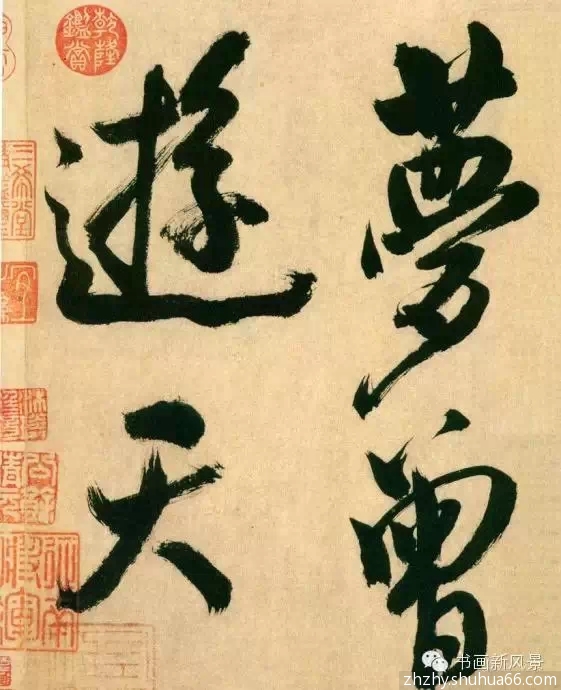 夢曾
遊天
乾隆鑑賞
三希堂
书画新风景
zhzhyshuhua66.com